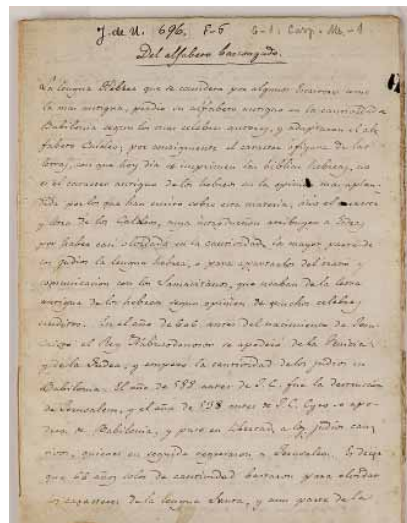 J. de U. 696. F-6 G-1. Carp. Me-1
Del alfabeto bascongado.
La lengua Hebrea que se considera por algunos Escritores como
la mas antigua, perdió su alfabeto antiguo en la cautividad de
Babilonia segun los mas celebres autores, y adaptaron el alfa
fabeto Caldeo; por consiguiente el caracter o figura de las
letras, con que hoy dia se imprimen las biblias hebreas, no
es el caracter antiguo de los hebreos en la opinion mas
por los que han escrito sobre esta materia, sino el caracter
y letra de los Caldeos, cuya introduccion atribuyen a Esdras
por haber casi olvidado en la cautividad la mayor parte de
los judios la lengua hebrea, o para apartarlos del trato y
comunicacion con los Samaritanos, que usaban de la letra
antigua de los hebreos segun opinion de muchos celebres
eruditos. En el año de 606 antes del nacimiento de Jesu
Cristo el Rey Nabucodonosor se apoderó de la Fenicia,
y de la Judea, y empezó la cautividad de los judios en
Babilonia. El año de 588 antes de J.C. fue la destruccion
de Jerusalem, y el año de 538 antes de J.C. Cyro se apo-
dera de Babilonia, y puso en libertad a los judios cau
tivos, quienes en seguida regresaron a Jerusalem. Es decir
que 68 años solos de cautividad bastaron para olvidar
los caracteres de la lengua Santa, y aun parte de la